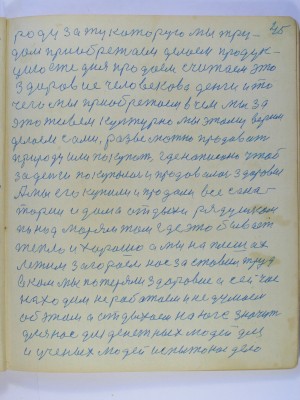 45
роду за ту которую мы тру-
дом приобретаем делаем продук-
цию эте дня продаем считаем это
здоровие человекова деньги то
чего мы приобретаем в сем мы за
это живем культурно мы этому верим
делаем сами, разве можно продавать
природу или покупать, где написано чтоб
за деньги покупалось и продавалось здоровье
А мы его купили и продали все сана-
тории и дома отдыха рядушком
под морями там где это бывает
тепло и хорошо а мы на пляжах
лежим загораем нас заставил труд
в ком мы потеряли здоровие а сейчас
находим не работаем и не думаем
об этом а отдыхаем на юге значит
для нас для денежных людей для
и ученых людей испытаное дело